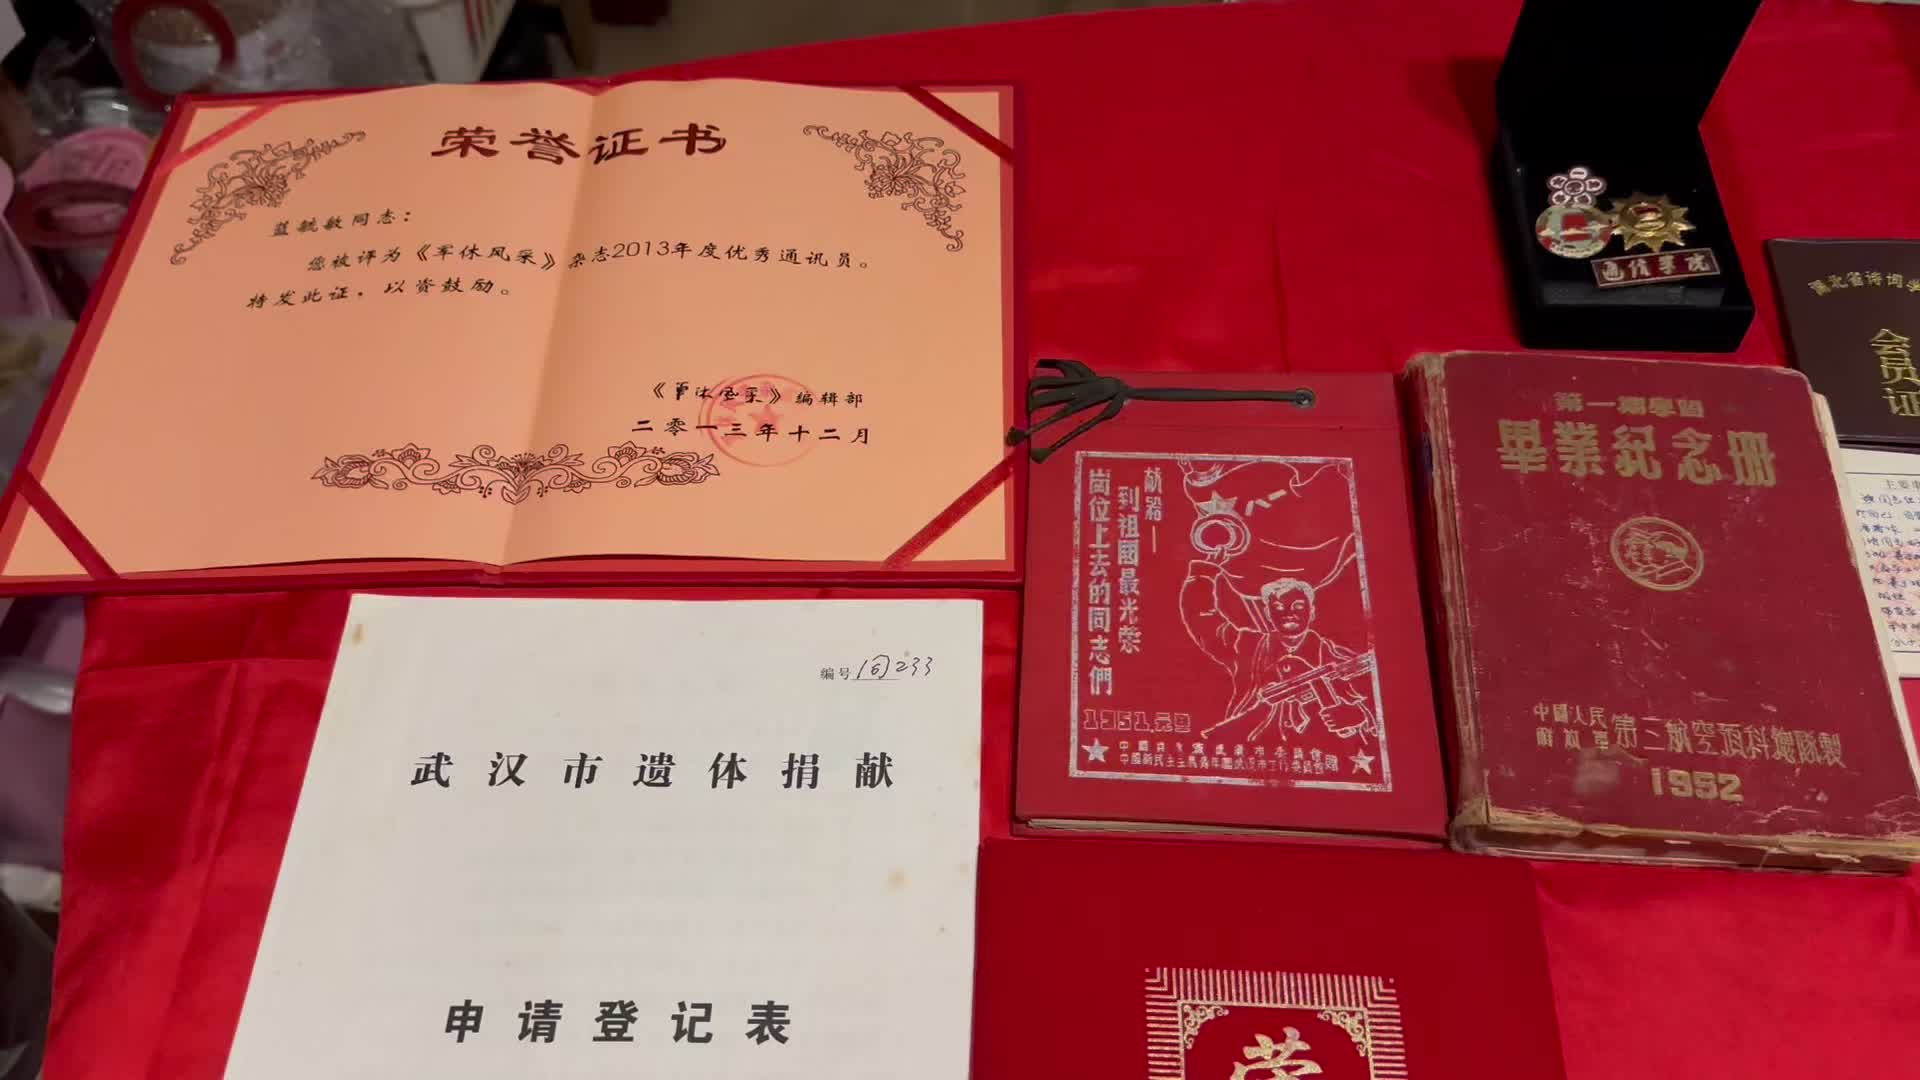 荣誉证书
蓝毓敏同志：
您被评为《军休风采》杂志2013年度优秀通讯员。
特发此证，以资鼓励。
《军休风采》编辑部
二零一三年十二月
编号 同233
武汉市遗体捐献
申请登记表
献给—
到祖國最光荣
崗位上去的同志們
1951.元.9
通信学院
第一期學習
畢業紀念册
中國人民
解放軍
第三航空預科總隊製
1952
湖北省诗词
会员证
荣